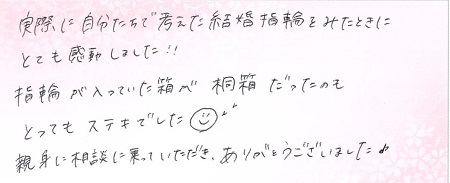 実際に自分たちで考えた結婚指輪をみたときに
とても感動しました!!
指輪が入っていた箱が桐箱だったのも
とってもステキでした
親身に相談に乗っていただき、ありがとうございました♪